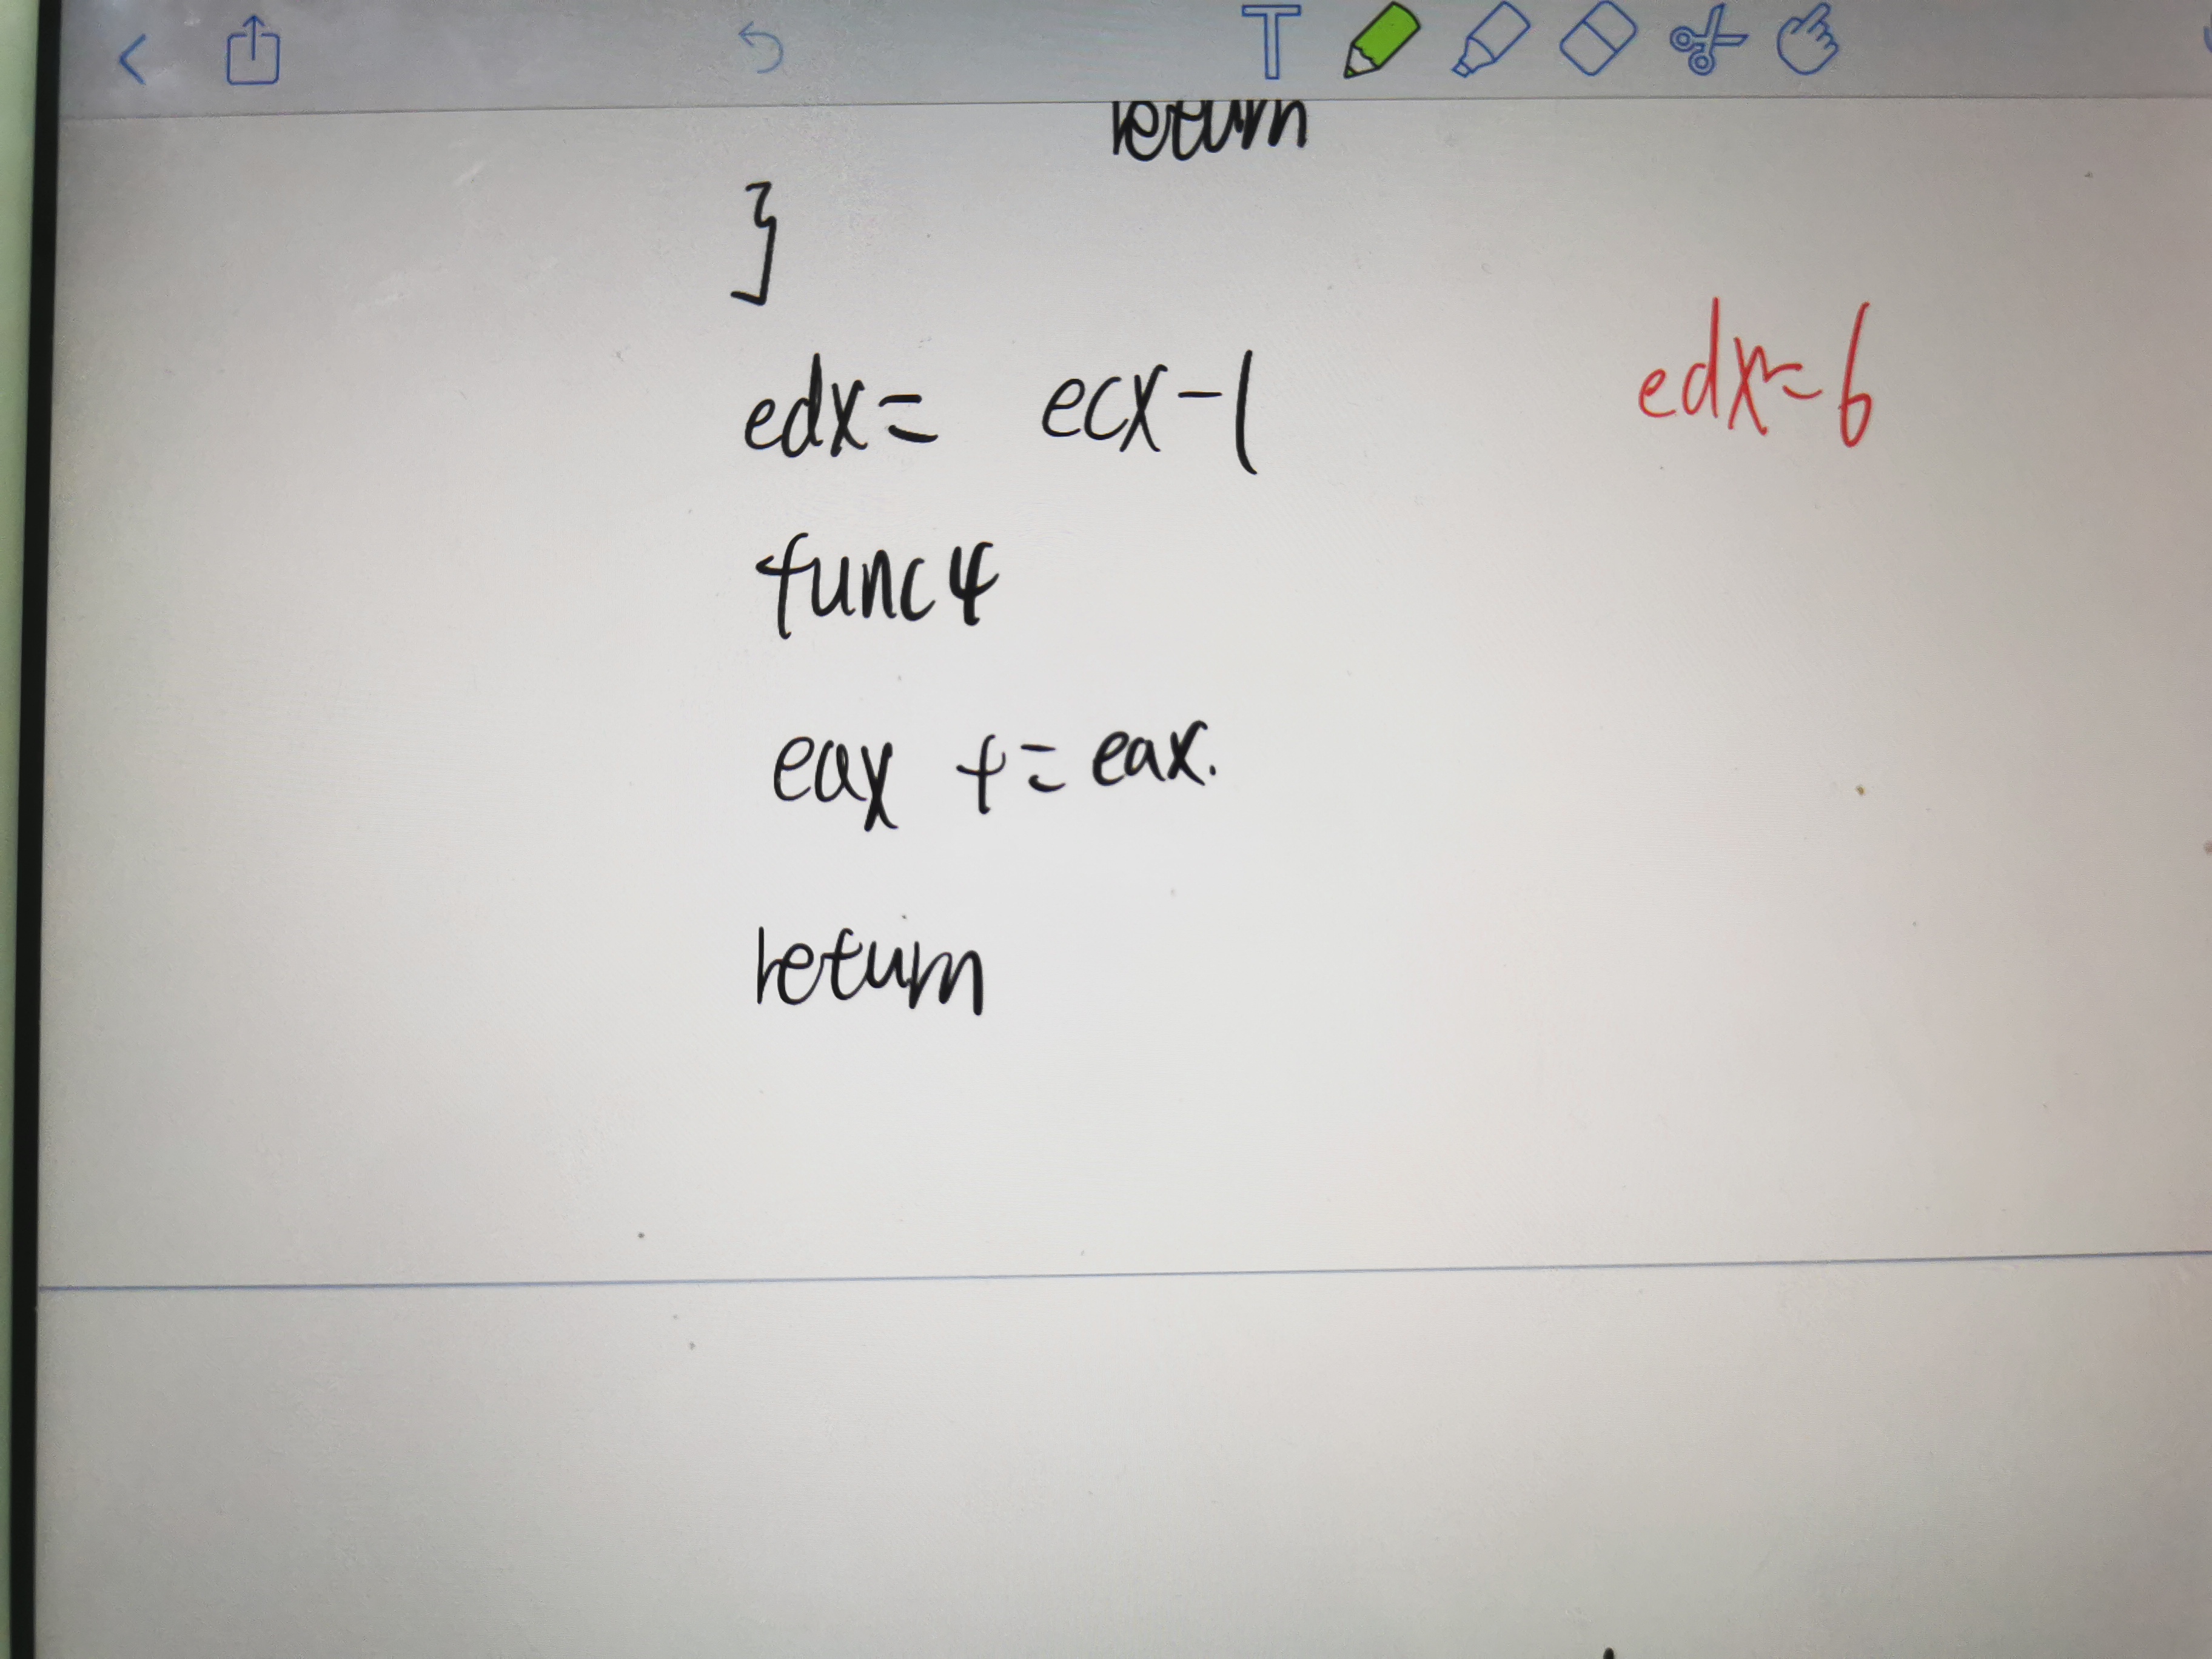 return
}
edx = ecx-1
edx=6
func4
eax += eax.
return